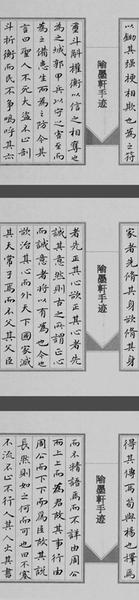 以鋤其强梗相欺也為之符
隃墨軒手迹
璽斗斛權衡以信之相奪也
為之城郭甲兵以守之害至而
為之備患生而為之防今其
言曰聖人不死大盜不止剖
斗折衡而民不爭嗚呼其亦
家者先脩其身欲脩其身
隃墨軒手迹
者先正其心欲正其心者先
誠其意然則古之所謂正心
而誠意者將以有為也今也
欲治其心而外天下國家滅
其天常子焉而不父其父臣
得其傳焉荀與楊也擇焉
隃墨軒手迹
而不精語焉而不詳由周公
而上上而為君故其事行由
周公而下下而為臣故其說
長然則如之何而可也曰不塞
不流不止不行人其人火其書